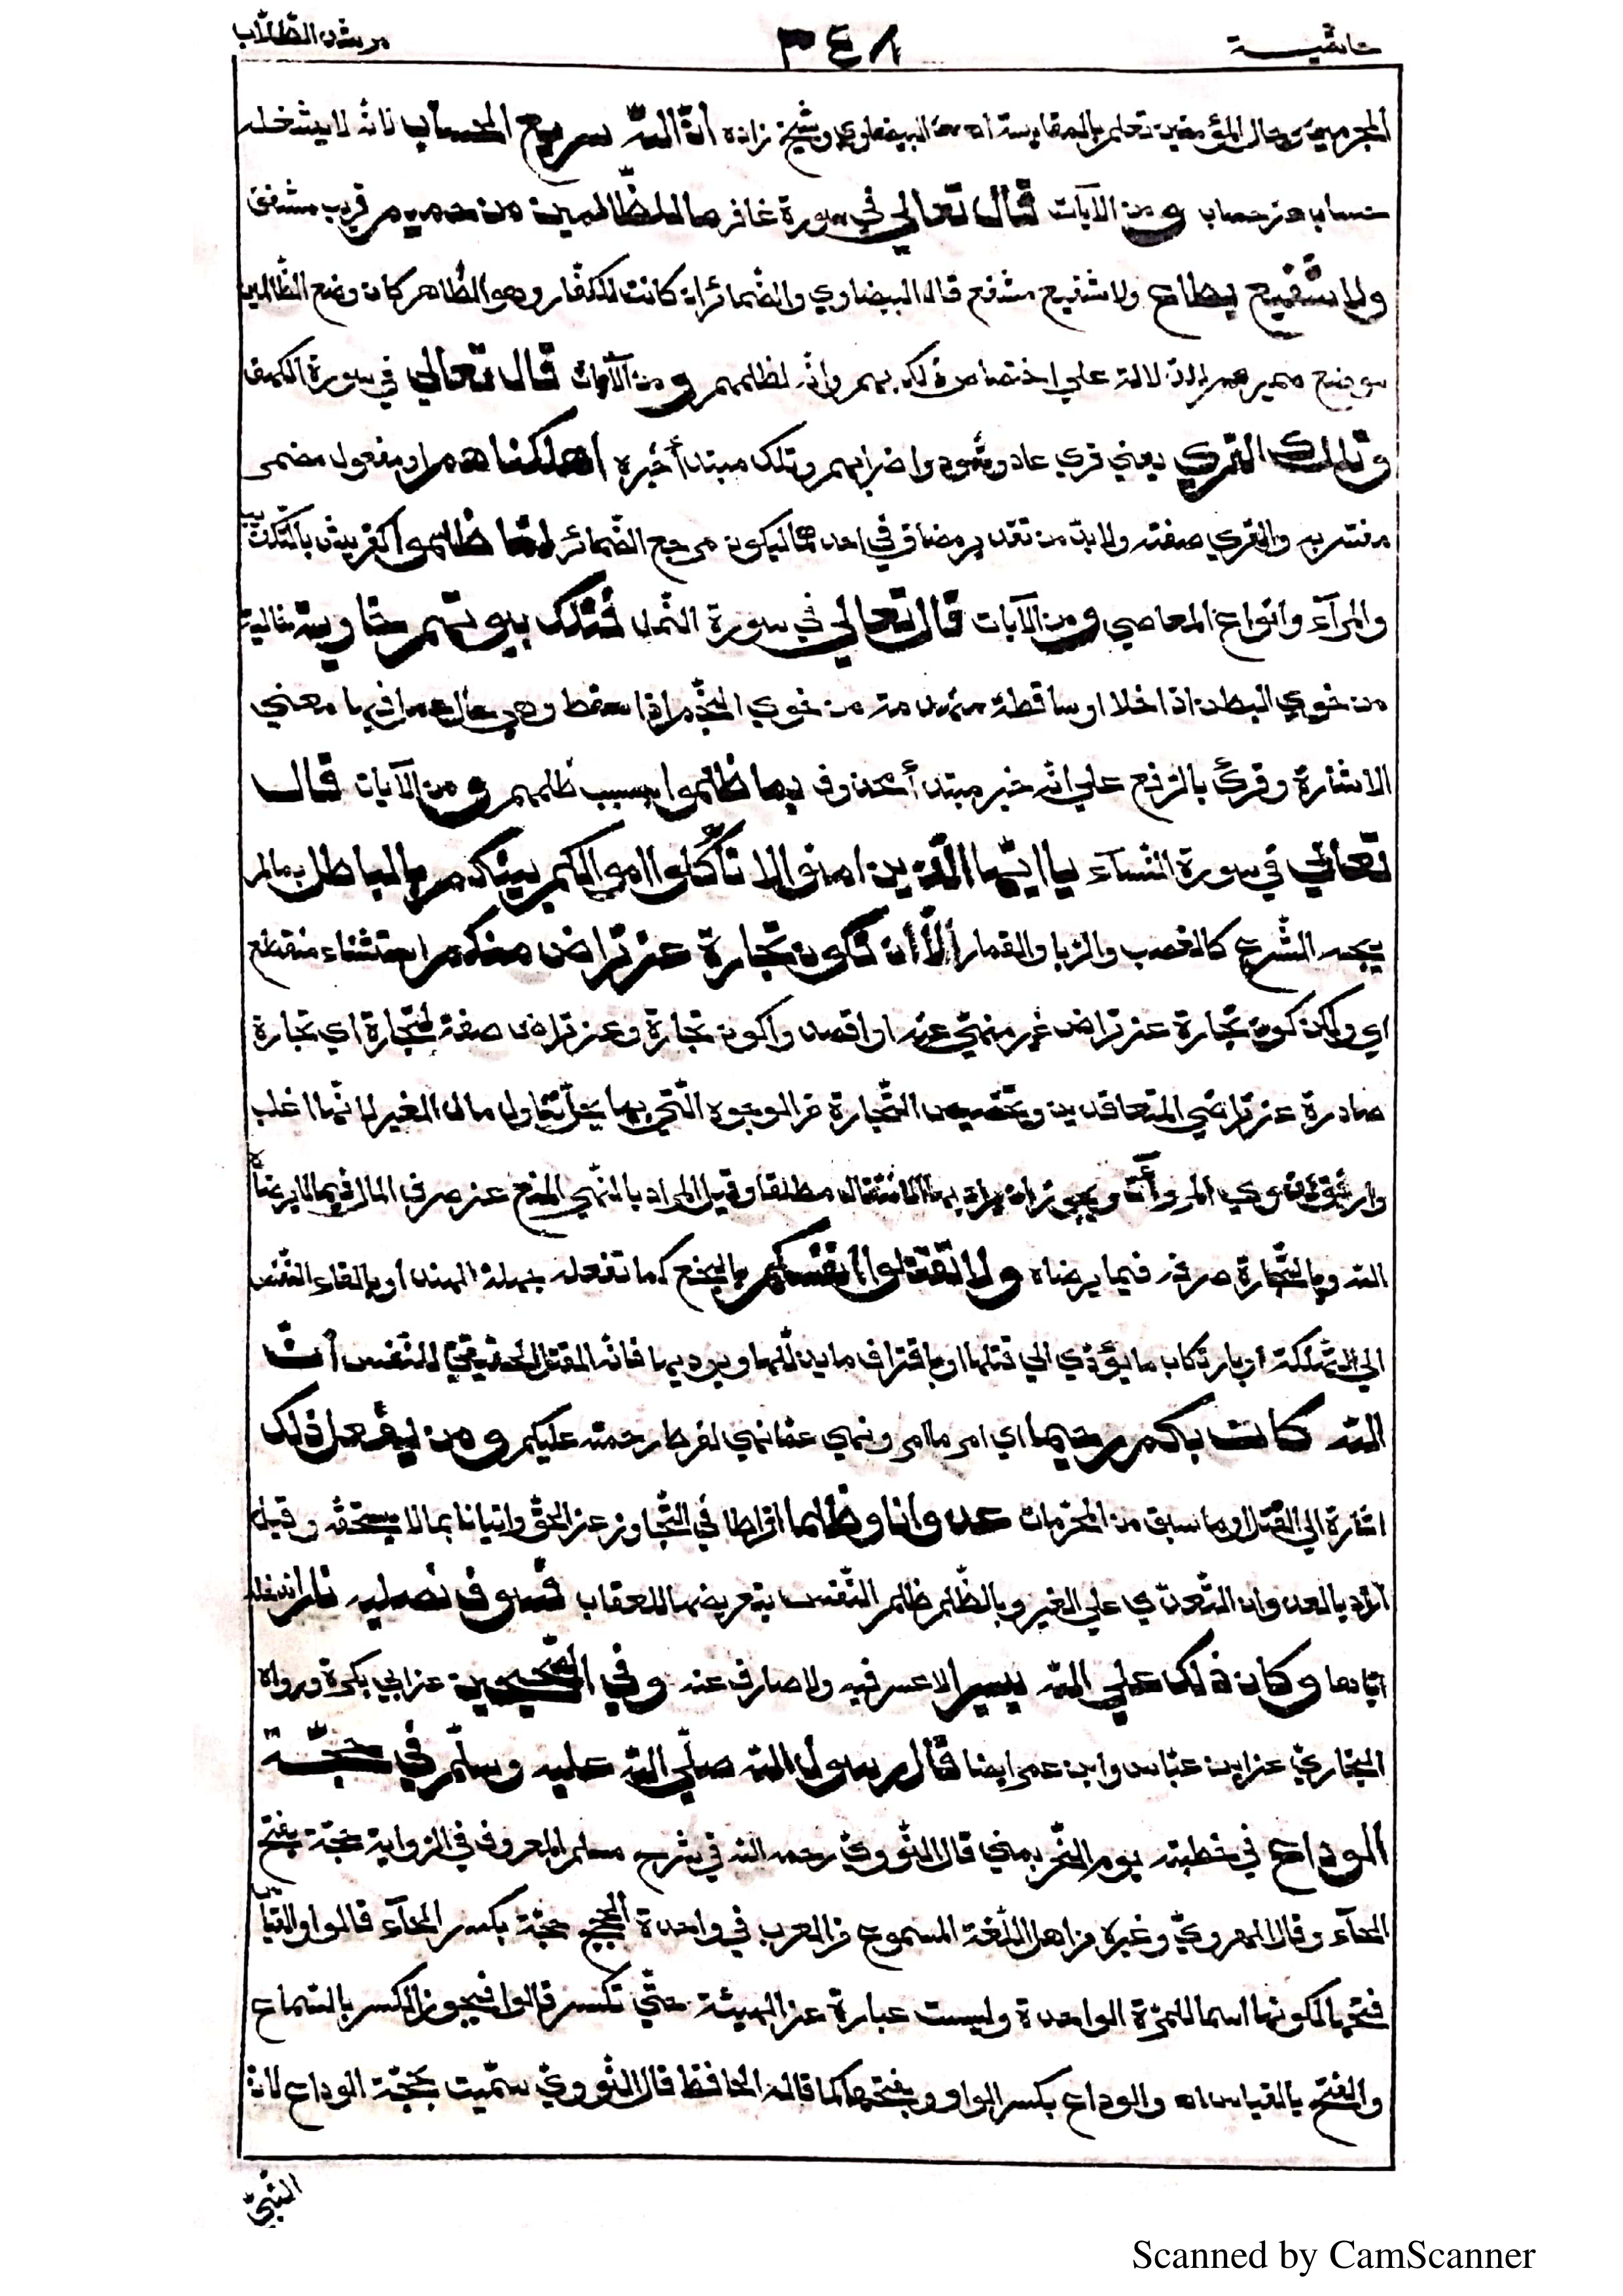 حاشية ٣٤٨ مرشد الطلاب
المجرمين وحال المؤمنين تعلم بالمقايسة اه من البيضاوي وشيخ زاده انّ اللّه سريع الحساب لانّه لا يشغله
حساب عن حساب ومن الآيات قال تعالى في سورة غافر ما للظّالمين من حميم قريب مشفق
ولا شفيع يطاع ولا شفيع مشفع قال البيضاوي والضّمائر ان كانت للكفّار وهو الظّاهر كان وضع الظّالمين
موضع ضميرهم للدّلالة علي اختصاص ذلك بهم وانّه لظلمهم ومن الآيات قال تعالي في سورة الكهف
وتلك القري يعني قري عاد وثمود واضرابهم وتلك مبتدأ خبره اهلكناهم او مفعول مضمر
مفسّر به والقري صفته ولا بدّ من تقدير مضاف في احدهما ليكون مرجع الضّمائر لمّا ظلموا كقريش بالتّكذيب
والمرآء وانواع المعاصي ومن الآيات قال تعالي في سورة النّمل فتلك بيوتهم خاوية خالية
من خوي البطن اذا خلا او ساقطة منهدمة من خوي النّجم اذا سقط وهي حال عمل فيها معني
الاشارة وقرئ بالرّفع علي انّه خبر مبتدأ محذوف بما ظلموا بسبب ظلمهم ومن الآيات قال
تعالي في سورة النّسآء يا ايّها الّذين امنوا لا تأكلوا اموالكم بينكم بالباطل بما لم
يبحه الشّرع كالغصب والرّبا والقمار الّا أن تكون تجارة عن تراض منكم استثناء منقطع
اي ولكن كون تجارة عن تراض غير منهيّ عنه او اقصدوا كون تجارة وعن تراض صفة لتجارة اي تجارة
صادرة عن تراضي المتعاقدين وتخصيص التّجارة من الوجوه الّتي بها يحلّ تناول مال الغير لانّها اغلب
وارفق لذوي المروأت ويجوز ان يراد بها الانتقال مطلقا وقيل المراد بالنّهي المنع عن صرف المال فيما لا يرضاه
اللّه وبالتّجارة صرفه فيما يرضاه ولا تقتلوا انفسكم بالبخع كما تفعله جهلة الهند او بالقاء النّفس
الي التّهلكة او بارتكاب ما يؤدّي الي قتلها او باقتراف ما يذلّلها ويرديها فانّه القتل الحقيقيّ للنّفس انّ
اللّه كان بكم رحيما اي امر ما امر ونهي عمّا نهي لفرط رحمته عليكم ومن يفعل ذلك
اشارة الي القتل او ما سبق من المحرّمات عدوانا وظلما افراطا في التّجاوز عن الحقّ واتيانا بما لا يستحقّه وقيل
اراد بالعدوان التّعدّي علي الغير وبالظّلم ظلم النّفس بتعريضها للعقاب فسوف نصليه نارا ندخله
ايّاها وكان ذلك علي اللّه يسيرا لا عسر فيه ولا صارف عنه وفي الصّحيحين عن ابي بكرة ورواه
البخاريّ عن ابن عبّاس وابن عمر ايضا قال رسول اللّه صلّي اللّه عليه وسلّم في حجّة
الوداع في خطبته يوم النّحر بمني قال النّوويّ رحمه اللّه في شرح مسلم المعروف في الرّواية حجّة بفتح
الحآء وقال الهرويّ وغيره من اهل اللّغة المسموع من العرب في واحدة الحجج حجّة بكسر الحآء قالوا والقياس
فتحها لكونها اسما للمرّة الواحدة وليست عبارة عن الهيئة حتّي تكسر قالوا فيجوز الكسر بالسّماع
والفتح بالقياس اه والوداع بكسر الواو وبفتحها كما قاله الحافظ قال النّوويّ سمّيت بحجّة الوداع لانّ
النّبيّ
Scanned by CamScanner